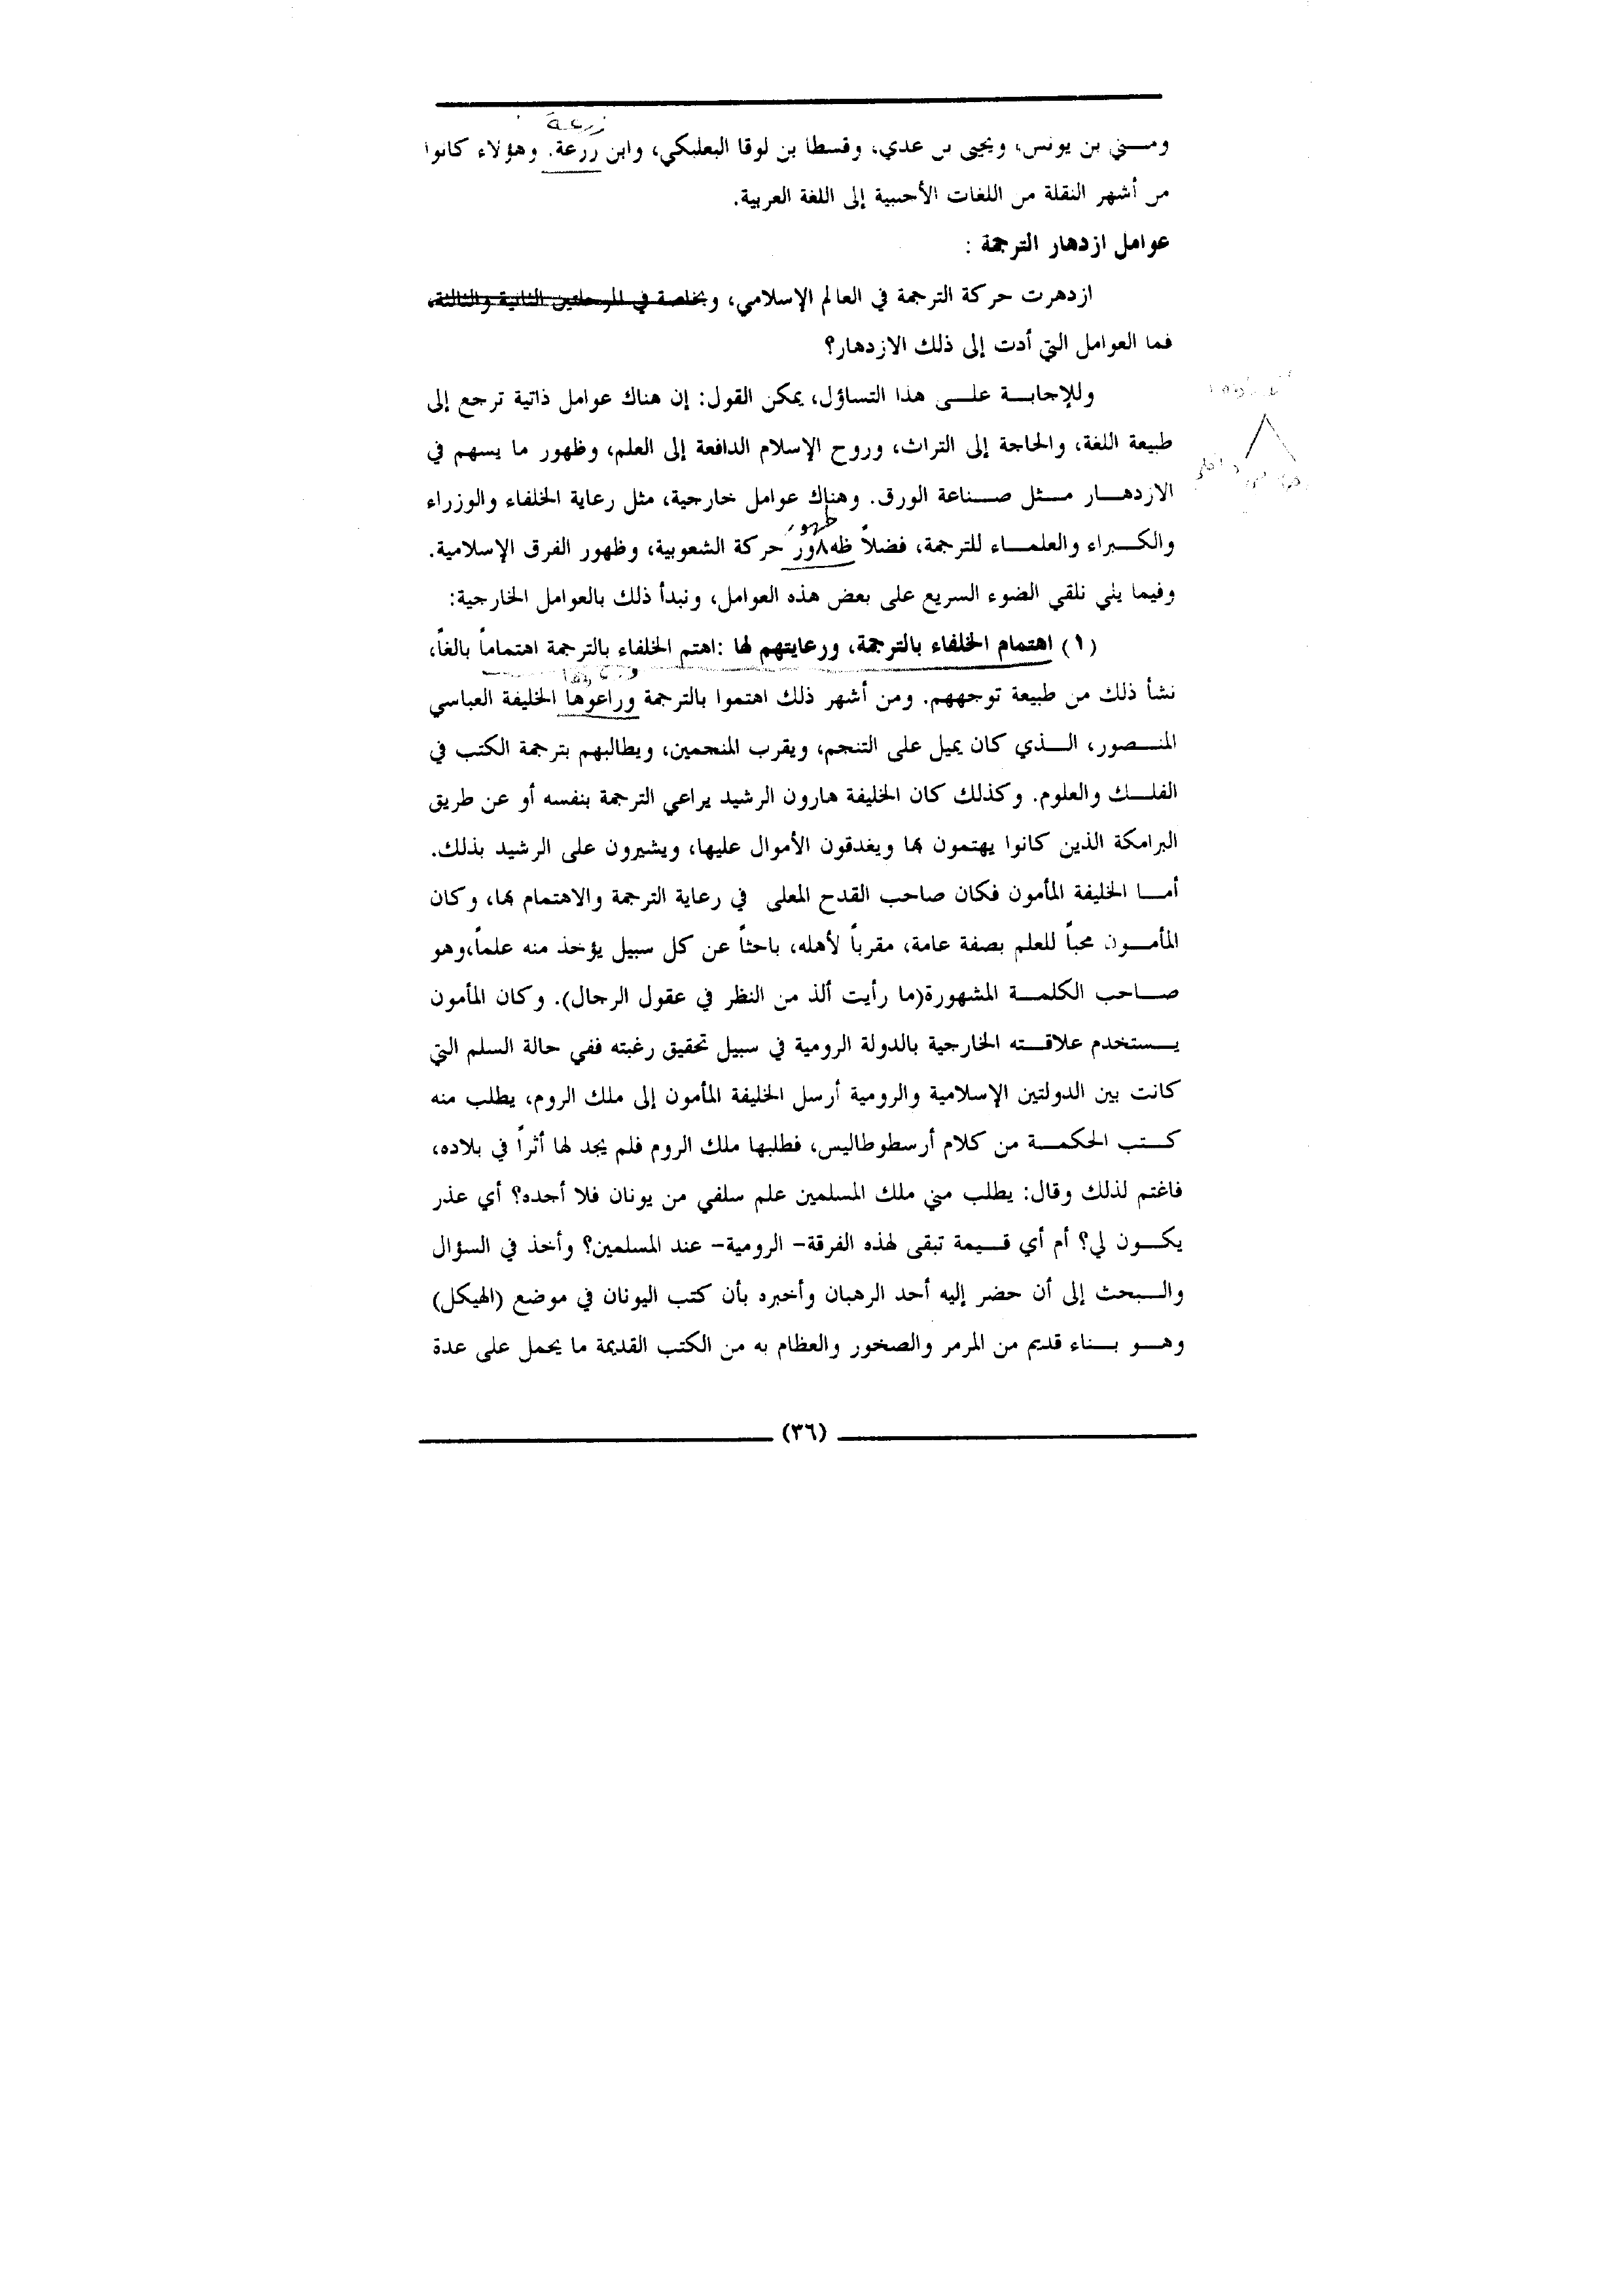 زرعة
ومتي بن يونس، ويحيى بن عدي، وقسطا بن لوقا البعلبكي، وابن زرعة. وهؤلاء كانوا
من أشهر النقلة من اللغات الأجنبية إلى اللغة العربية.
عوامل ازدهار الترجمة :
ازدهرت حركة الترجمة في العالم الإسلامي، وبخاصة في المرحلتين الثانية والثالثة،
فما العوامل التي أدت إلى ذلك الازدهار؟
وللإجابة على هذا التساؤل، يمكن القول: إن هناك عوامل ذاتية ترجع إلى
طبيعة اللغة، والحاجة إلى التراث، وروح الإسلام الدافعة إلى العلم، وظهور ما يسهم في
الازدهار مثل صناعة الورق. وهناك عوامل خارجية، مثل رعاية الخلفاء والوزراء
ظهور
والكبراء والعلماء للترجمة، فضلاً ظه٨ور حركة الشعوبية، وظهور الفرق الإسلامية.
وفيما يلي نلقي الضوء السريع على بعض هذه العوامل، ونبدأ ذلك بالعوامل الخارجية:
(١) اهتمام الخلفاء بالترجمة، ورعايتهم لها :اهتم الخلفاء بالترجمة اهتماماً بالغاً،
نشأ ذلك من طبيعة توجههم. ومن أشهر ذلك اهتموا بالترجمة وراعوها الخليفة العباسي
المنصور، الذي كان يميل على التنجم، ويقرب المنجمين، ويطالبهم بترجمة الكتب في
الفلك والعلوم. وكذلك كان الخليفة هارون الرشيد يراعي الترجمة بنفسه أو عن طريق
البرامكة الذين كانوا يهتمون بها ويغدقون الأموال عليها، ويشيرون على الرشيد بذلك.
أما الخليفة المأمون فكان صاحب القدح المعلى في رعاية الترجمة والاهتمام بها، وكان
المأمون محباً للعلم بصفة عامة، مقرباً لأهله، باحثاً عن كل سبيل يؤخذ منه علماً،وهو
صاحب الكلمة المشهورة(ما رأيت ألذ من النظر في عقول الرجال). وكان المأمون
يستخدم علاقته الخارجية بالدولة الرومية في سبيل تحقيق رغبته ففي حالة السلم التي
كانت بين الدولتين الإسلامية والرومية أرسل الخليفة المأمون إلى ملك الروم، يطلب منه
كتب الحكمة من كلام أرسطوطاليس، فطلبها ملك الروم فلم يجد لها أثراً في بلاده،
فاغتم لذلك وقال: يطلب مني ملك المسلمين علم سلفي من يونان فلا أجده؟ أي عذر
يكون لي؟ أم أي قيمة تبقى لهذه الفرقة- الرومية- عند المسلمين؟ وأخذ في السؤال
والبحث إلى أن حضر إليه أحد الرهبان وأخبره بأن كتب اليونان في موضع (الهيكل)
وهو بناء قديم من المرمر والصخور والعظام به من الكتب القديمة ما يحمل على عدة
(٣٦)